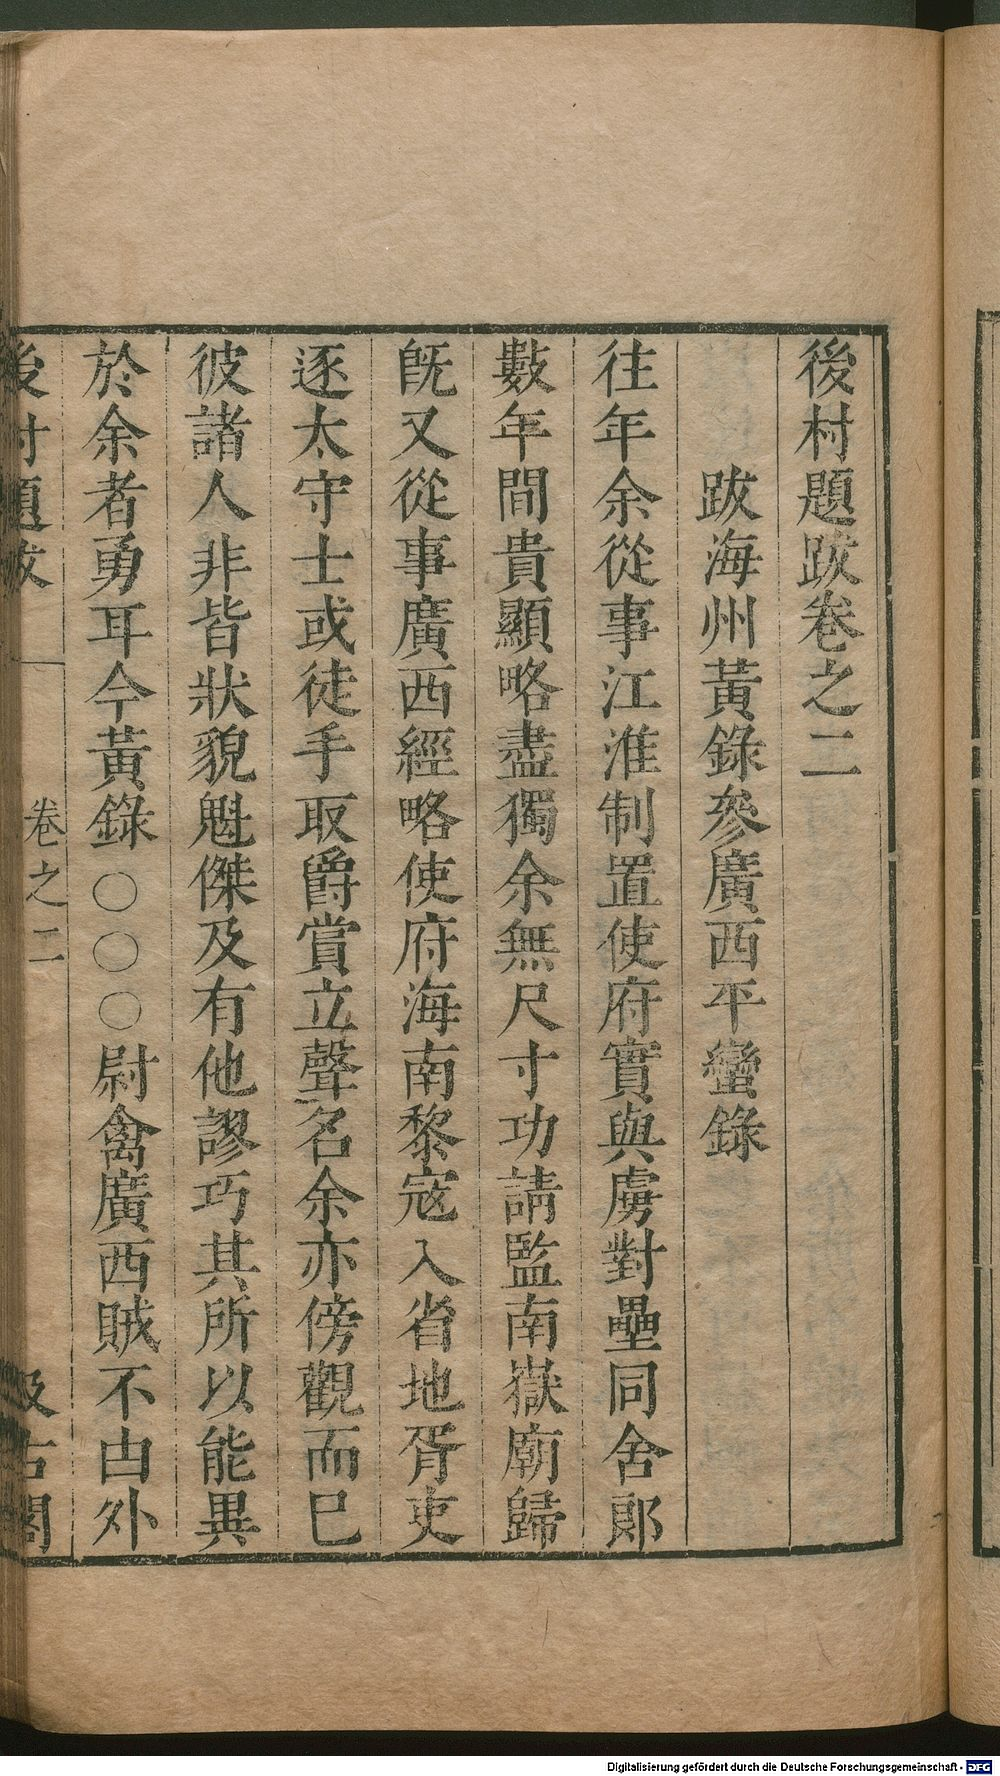 後村題跋卷之二
跋海州黃錄參廣西平蠻錄
往年余從事江淮制置使府實與虜對壘同舍郎
數年間貴顯略盡獨余無尺寸功請監南嶽廟歸
旣又從事廣西經略使府海南黎寇入省地胥吏
逐太守士或徒手取爵賞立聲名余亦傍觀而巳
彼諸人非皆狀貌魁傑及有他謬巧其所以能異
於余者勇耳今黃錄〇〇〇尉禽廣西賊不甴外
後村題跋 卷之二 汲古閣
Digitalisierung gefördert durch die Deutsche Forschungsgemeinschaft - DFG